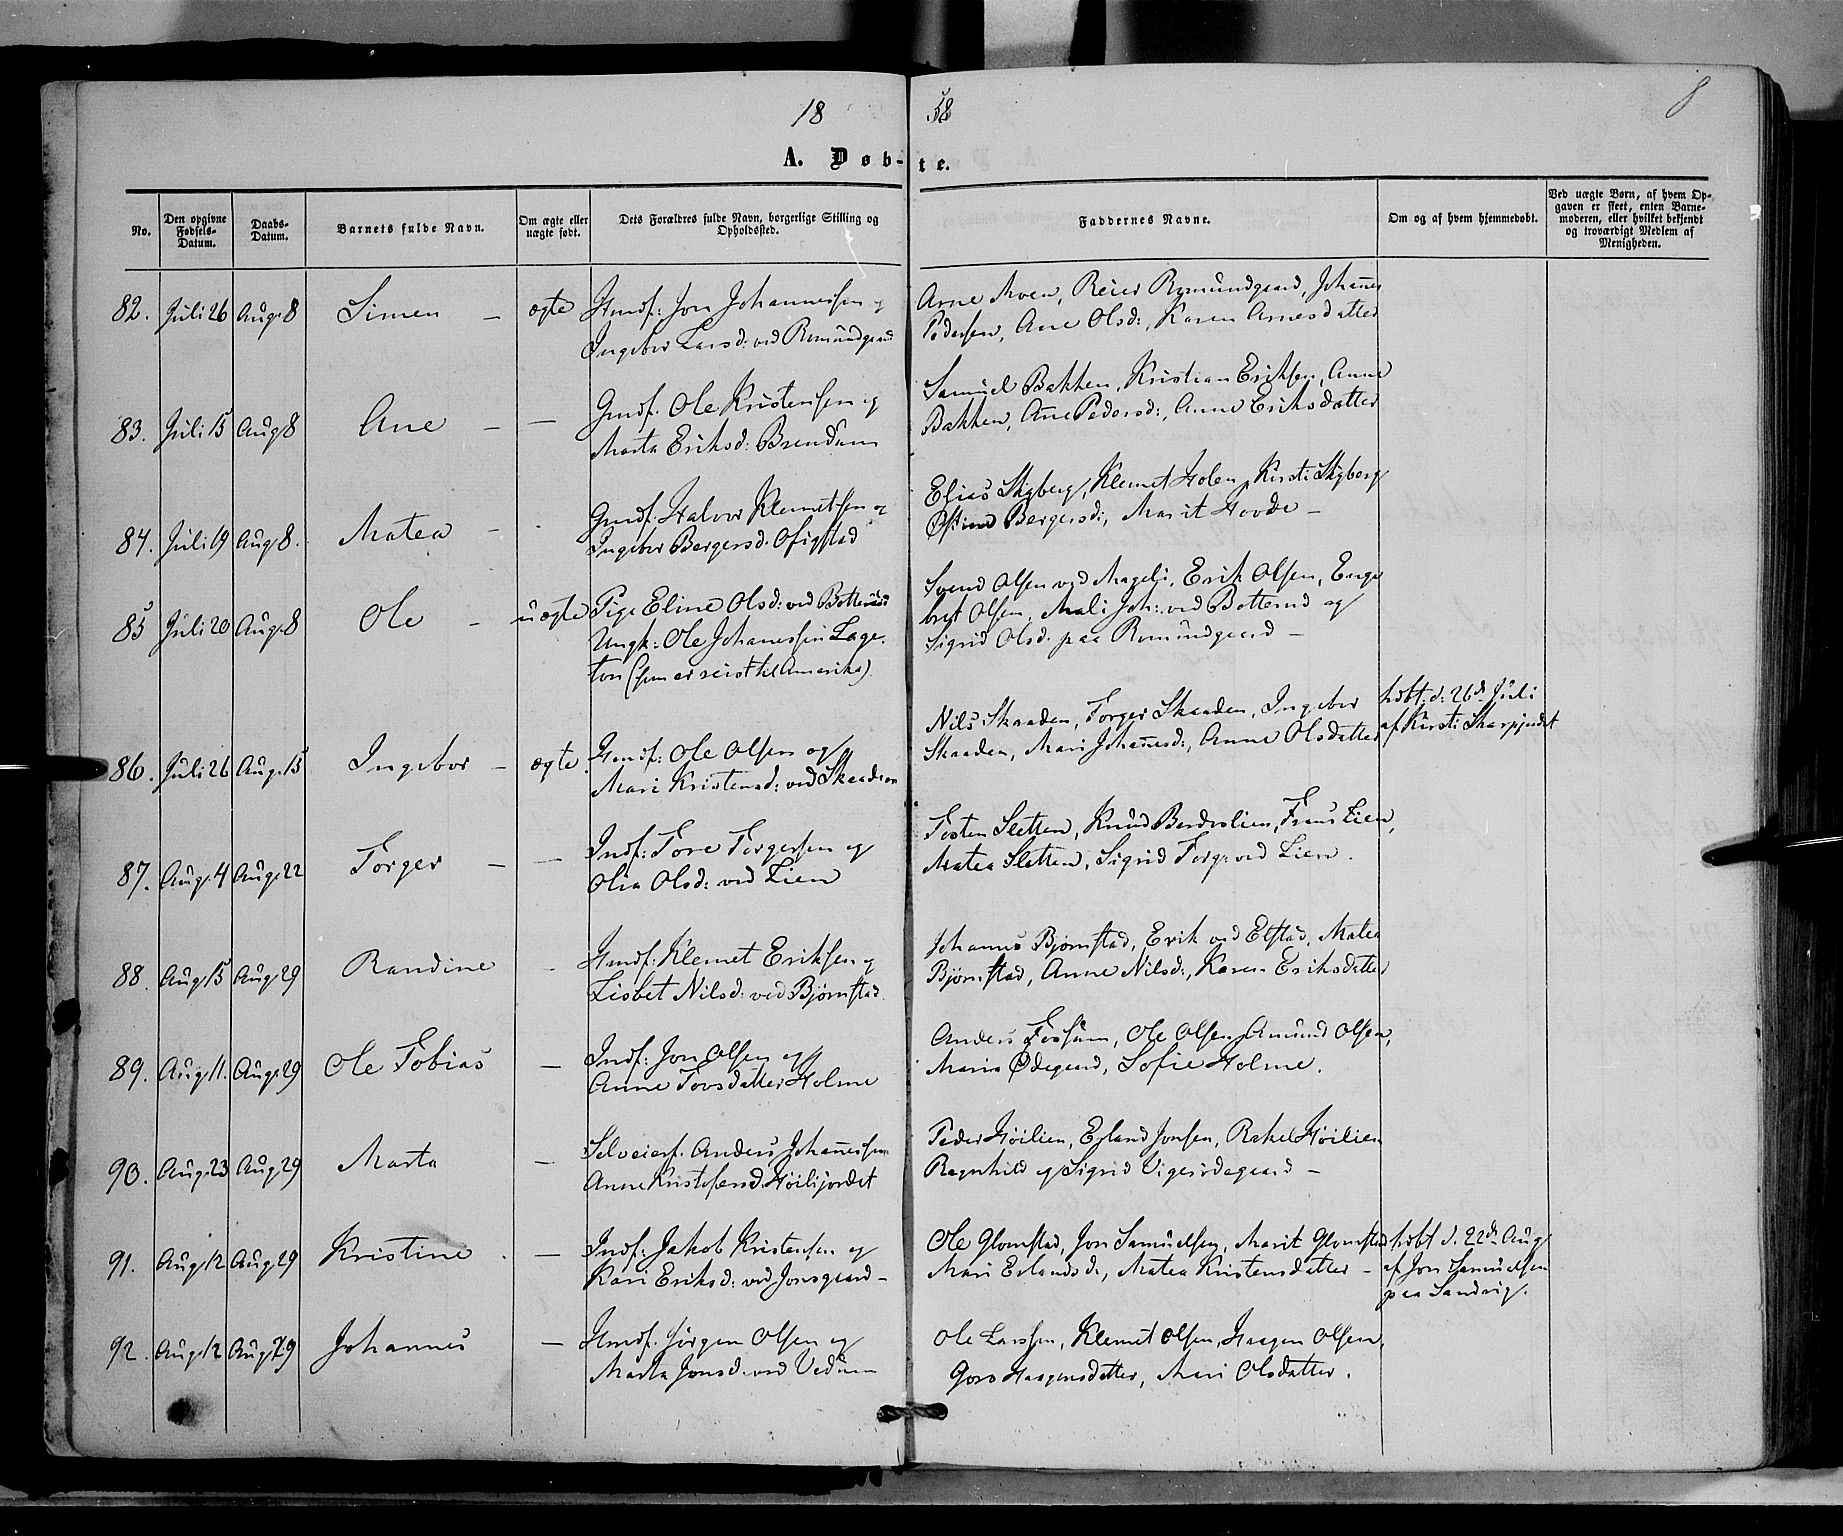 18 58 8
A. Døb-te.
No.
Den opgivne Fødsels-Datum.
Daabs-Datum.
Barnets fulde Navn.
Om ægte eller uægte født.
Dets Forældres fulde Navn, borgerlige Stilling og Opholdssted.
Faddernes Navne.
Om og af hvem hjemmedøbt.
Ved uægte Børn, af hvem Op-
gaven er skeet, enten Barne-
moderen, eller hvilket bekjendt
og troværdigt Medlem af
Menigheden.
82. Juli 26 Aug. 8 Simen – ægte
Hmdf: Jon Johannessen og
Ingebor Larsd: ved Romundgaard
Arne Moen, Reier Romundgaard, Johannes
Pedersen, Ane Olsd:, Karen Arnesdatter
83. Juli 15 Aug. 8 Ane – –
Gmdf: Ole Kristensen og
Marta Eriksd: Brendum
Samuel Bakken, Kristian Eriksen, Anne
Bakken, Ane Pedersd:, Anne Eriksdatter
84. Juli 19 Aug. 8. Matea –
Gmdf: Halvor Klemetsen og
Ingebor Bergersd.
Elias Skyberg, Klemet Holen, Kirsti Skyberg
Bergersd:, Marit Hovde –
85 Juli 20 Aug. 8 Ole – uægte
Pige Eline Olsd: ved Botterud
Ungk: Ole Johannessen Lage-
ton (som er reist til Amerika).
Svend Olsen ved Mageli, Erik Olsen, Enge
bret Olsen, Mali Joh: ved Botterud og
Sigrid Olsd. paa Romundgaard –
86. Juli 26 Aug. 15 Ingebor – ægte
Hmdf: Ole Olsen og
Mari Kristensd: ved Skaaden
Nils Skaaden, Torger Skaaden, Ingebor
Skaaden, Mari Johannesd:, Anne Olsdatter
hdbt. d: 26de Juli
af Kirsti Skarpjordet
87. Aug. 4 Aug. 22 Torger – –
Indf: Tore Torgersen og
Olia Olsd: ved Lien
Tosten Sletten, Knud Bardoslien, Frans Lien,
Matea Sletten, Sigrid Torg: ved Lien.
88. Aug. 15 Aug. 29 Randine –
Hmdf: Klemet Eriksen og
Lisbet Nilsd: ved Bjørnstad.
Johannes Bjørnstad, Erik ved Elstad, Matea
Bjørnstad, Anne Nilsd:, Karen Eriksdatter
89. Aug. 11. Aug. 29 Ole Tobias –
Indf: Jon Olsen og
Anne Torsdatter Holme
Anders Fossum, Ole Olsen, Amund Olsen,
Maria Ødegaard, Sofie Holme.
90. Aug. 23 Aug. 29 Marta –
Selveierf. Anders Johannessen
Anne Kristofersd. Høilijordet
Peder Høilien, Erland Jonsen, Rakel Høilien
Ragnhild og Sigrid Vigerødegaard –
91. Aug. 12 Aug. 29 Kristine. –
Indf: Jakob Kristensen og
Kari Eriksd: ved Jonsgaard –
Ole Glomstad, Jon Samuelsen, Marit Glomstad
Mari Erlandsd:, Matea Kristensdatter –
hdbt d. 22de Aug.
af Jon Samuelsen
paa Sandvig.
92. Aug. 12 Aug. 29 Johannes –
Hmdf. Jørgen Olsen og
Marta Jonsd: ved Vedum
Ole Larssen, Klemet Olsen, Haagen Olsen,
Goro Haagensdatter, Mari Olsdatter.